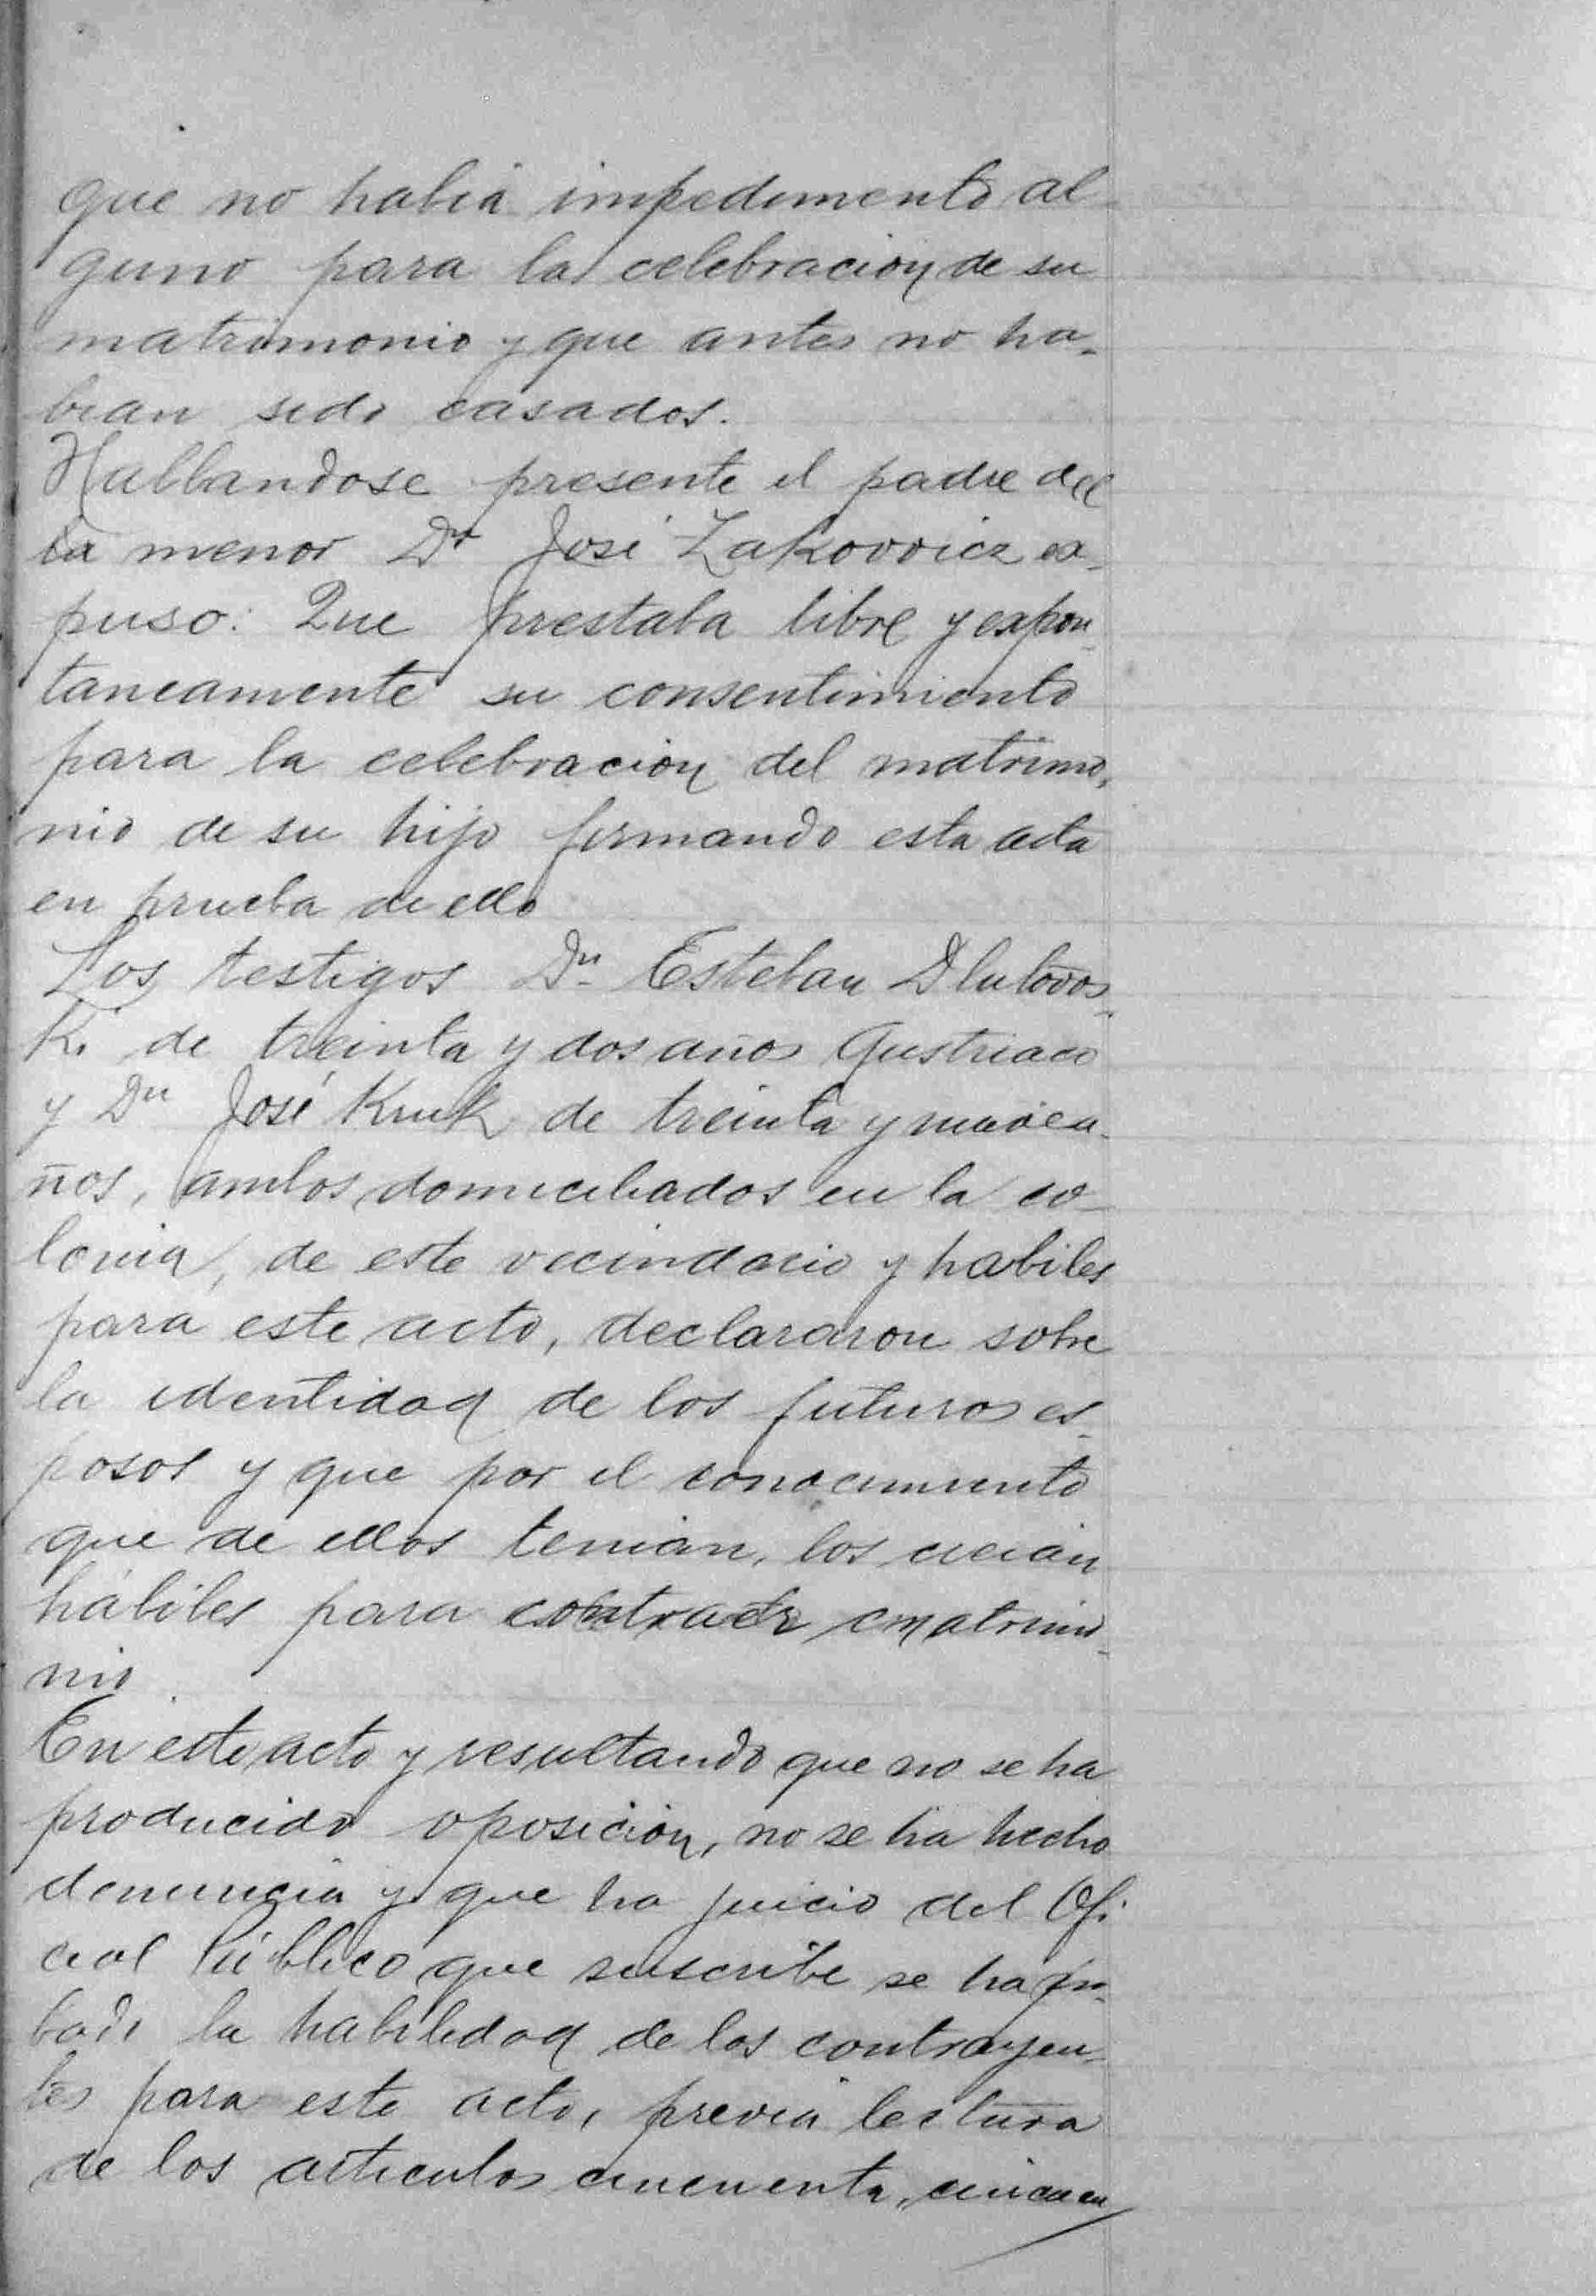 que no habia impedimento al-
guno para la celebracion de su
matrimonio y que antes no ha-
bian sido casados.
Hallandose presente el padre del
la menor Dn José Zakovvicz ex-
puso: Que prestaba libre y expon-
taneamente su consentimiento
para la celebracion del matrimo-
nio de su hijo firmando esta acta
en prueba de ello
Los testigos Dn Esteban Dlutovos-
Ki de treinta y dos años Austriaco
y Dn José Kruk de treinta y nueve a-
ños, ambos domiciliados en la co-
lonia, de este vecindario y habiles
para este acto, declararon sobre
la identidad de los futuros es-
posos y que por el conocimiento
que de ellos tenian, los creian
hábiles para contraer matrimo-
nio
En este acto y resultando que no se ha
producido oposicion, no se ha hecho
denuncia y que ha juicio del Ofi-
cial Público que suscribe se ha pro-
bado la habilidad de los contrayen-
tes para este acto, previa lectura
de los articulos cincuenta, cincuen